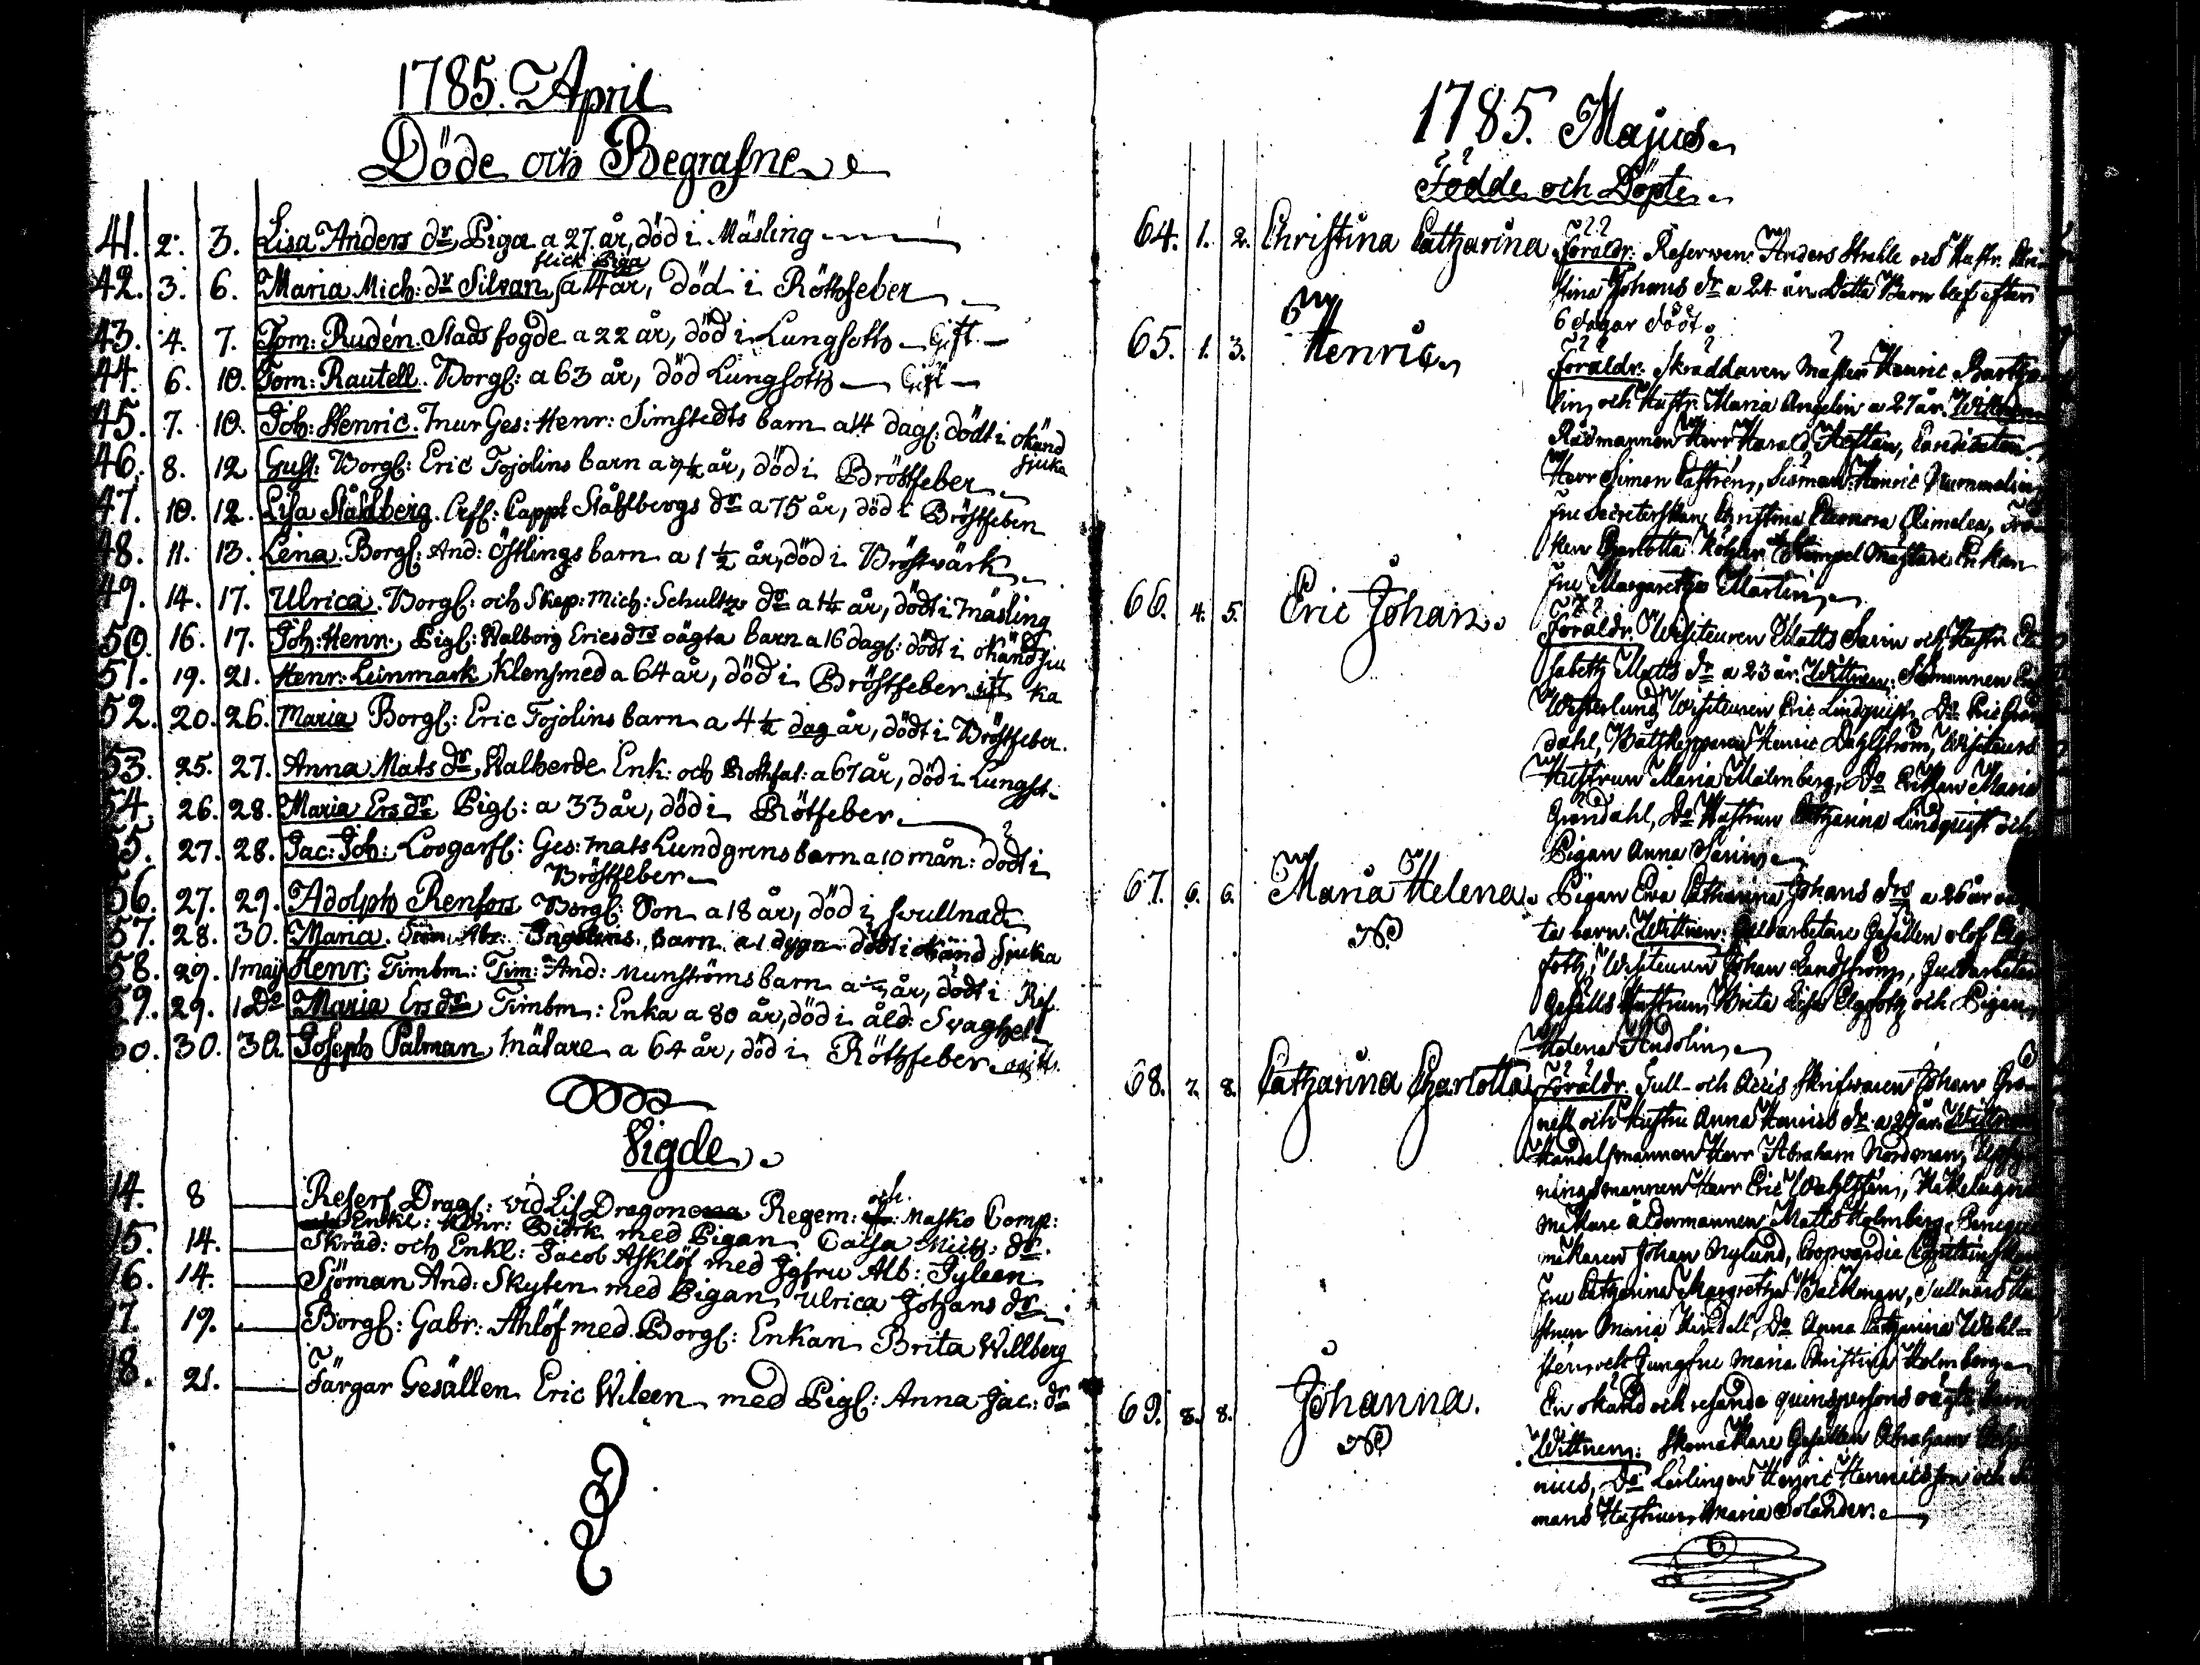 1785. April
Döde och Begrafne
41. 2. 3. Lisa Anders dr Piga a 27 år, död i Mäsling
flick Piga
42. 3. 6. Maria Mich: dr Silvan, a 14 år, död i Röthfeber
43. 4. 7. Tom: Rudén. Stads fogde a 22 år, död i Lungsoth Gift
44. 6. 10. Tom: Rautell. Borgf: a 63 år, död Lungsoth Gift
45. 7. 10. Joh: Henric. Mur Ges: Henr: Simstedts barn a 14 dag: dödt i okänd
sjuka
46. 8. 12 Gust: Borgf: Eric Tojolins barn a år, död i Bröstfeber
47. 10. 12. Lisa Ståhlberg. Cappt Ståhlbergs dr a 75 år, död i Bröstfeber
48. 11. 13. Lena. Borgf: And: Östlings barn a 1 1/2 år, död i Bröstwärk
49. 14. 17. Ulrica. Borgf: och Skep: Mich: Schultz dr a år, dödt i mäsling
50. 16. 17. Joh: Henr: Pigf: Walborg Ericsdrs oägta barn a 16 dag: dödt i okänd sju
ka
51. 19. 21. Henr: Leinmark Klensmed a 64 år, död i Bröstfeber gift
52. 20. 26. Maria Borgf: Eric Tojolins barn a 4 1/2 dag år, dödt i Bröstfeber.
53. 25. 27. Anna Mats dr, Walberde Enk: och Rothfat: a 67 år, död i Lungst.
54. 26. 28. Maria Ers dr Pigf: a 33 år, död i Rötfeber.
55. 27. 28. Jac: Joh: Ges: Mats Lundgrens barn a 10 mån: dödt i
Bröstfeber
56. 27. 29. Adolph Renfors Borgf: Son a 18 år, död i svullnad
57. 28. 30. Maria. barn a 1 dygn dödt i okänd sjuka
58. 29. 1 maij Henr: Timbm: Tim: And: Munströms barn a år, dödt i Rif
59. 29. 1 Do Maria Ers dr Timbm: Enka a 80 år, död i åld: Svaghet
60. 30. 30. Joseph Palman Målare a 64 år, död i Röthfeber gift.
Vigde
14. 8 Reserf Drag: vid Lif Dragone Regem: och Masko Comp:
Enkl: Henr: Biörk med Pigan Caisa Mich: dr.
15. 14. Skräd: och Enkl: Jacob Asklöf med Jgfru Alb: Tyleen
16. 14. Sjöman And: Skyten med Pigan Ulrica Johans dr
17. 19. Borgf: Gabr: Ahlöf med Borgf: Enkan Brita Willberg
18. 21. Färgar Gesällen Eric Wileen med Pigf: Anna Jac: dr
1785. Majus
Födde och Döpte
64. 1. 2. Christina Catharina Föräldr: Reserven: Anders Strahle och Hustr. Chri
stina Johans dr a 24 år. Detta Barn blef efter
6 dagar dödt.
65. 1. 3. Henric Föräldr: Skräddaren Mäster Henric Bartho
lin, och Hustr. Maria Angelin a 27 år. Wittnen
Rådmannen Herr Harald Hoftan, Candidaten
Herr Simon Castrén, Sisman: Henric Nummelin
Fru Secreterskan Christina Eleonora Frö
ken Charlotta Köhler Stempel Mästare Enkan
Fru Margaretha Martin
66. 4. 5. Eric Johan. Föräldr. Wisiteuren Matts Sarin och Hustr. Eli
sabeth Matts dr a 23 år. Wittnen: Sismannen
Westerlund Wisiteuren Eric Lindquist, Do Eric Grön
dahl, Båtskepparen Henric Dahlström, Wisiteurs
Hustrun Maria Malmberg, Do Enkan Maria
Gröndahl, Do Hustrun Catharina Lindquist och
Pigan Anna Sarin
67. 6. 6. Maria Helena. Pigan Ewa Catharina Johans drs a 26 år oäg
ta barn. Wittnen: Gesällen Olof Elg
foth, Wisiteuren Johan Landström,
Gesälls Hustrun Brita Lisa Elgfoth och Pigan
Helena Andolin
68. 7. 8. Catharina Charlotta Föräldr. Tull- och Accis Skrifvaren Johan Grö
nell och Hustru Anna Henrics dr a år. Wittnen
Handelsmannen Herr Abraham Nordman,
ningsmannen Herr Eric Wahlsten, Kakelugns
makare åldermannen Matts Holmberg,
makaren Johan Nylund, Coopvardie Capitainskan
Fru Catharina Margretha Backman, Tullnärs Hu
strun Maria Kindell, Do Anna Catharina Wahl=
sten, och Jungfru Maria Christina Holmberg
69. 8. 8. Johanna. En okänd och resande quinspersons oägta barn
Wittnen: Skomakare Gesällen Abraham
nius, Do Lärlingen Henric Henricsson och
mans Hustrun Maria Solander.